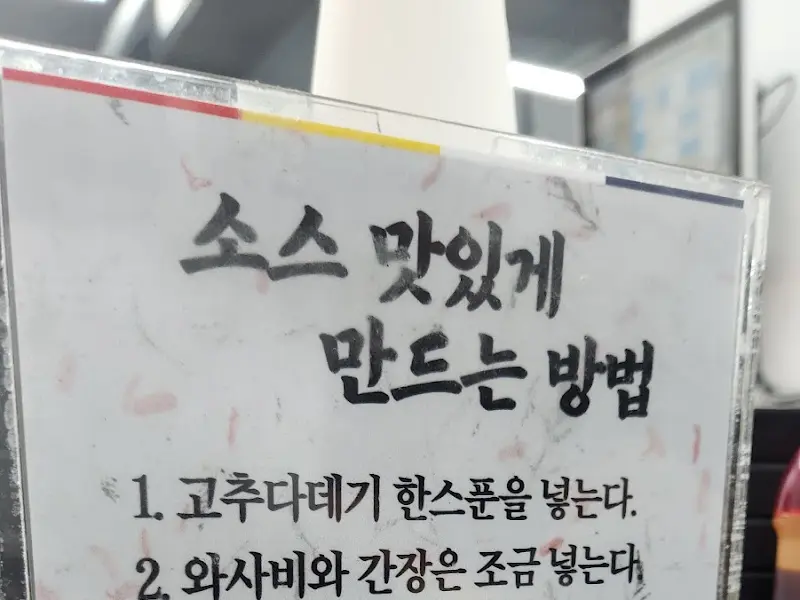 소스 맛있게
만드는 방법
1. 고추다데기 한스푼을 넣는다.
2. 와사비와 간장은 조금 넣는다